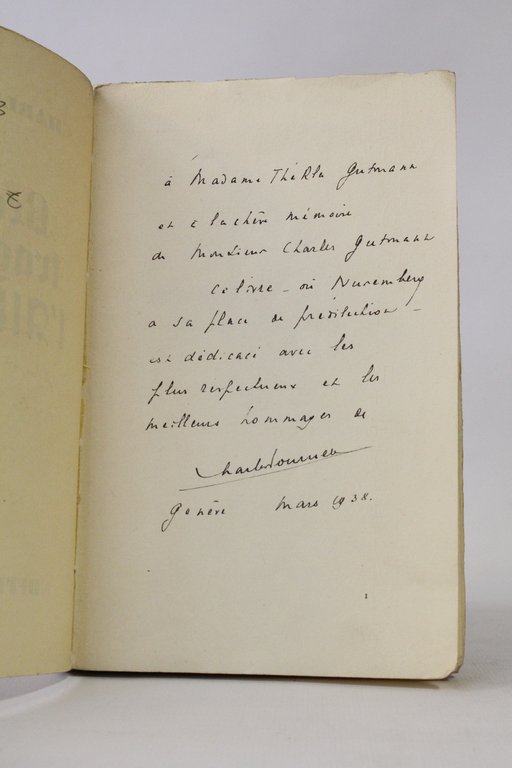 à Madame Thékla Gutmann
et à la chère mémoire
de Monsieur Charles Gutmann
ce livre - où Nuremberg
a sa place de prédilection -
est dédicacé avec les
plus respectueux et les
meilleurs hommages de
Genève Mars 1938.
1